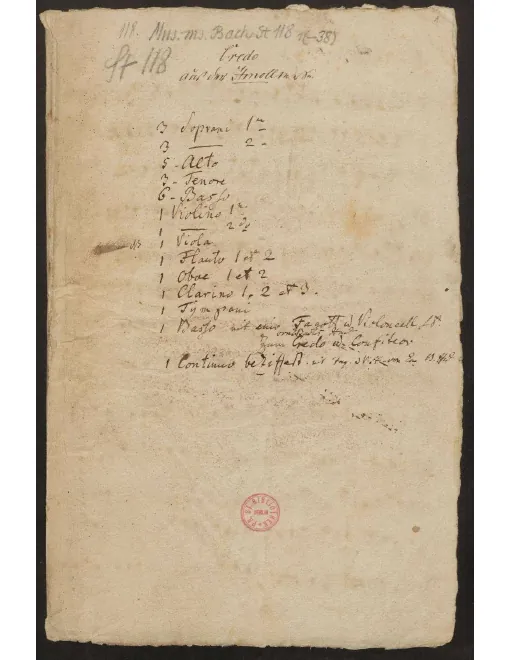 118. Mus. ms. Bach St 118 (1-38)
St 118
Credo
aus der Hmoll
3 Soprani 1mo
3 — 2do
5 - Alto
3 - Tenore
6 - Basso
1 Violino 1mo
1 — 2do
1 Viola
1 Flauto 1 et 2
1 Oboe 1 et 2
1 Clarino 1, 2 et 3.
1 Tympani
1 Basso mit einer Fagott u Violoncell St
zum Credo u. Confiteor
1 Continuo beziffert